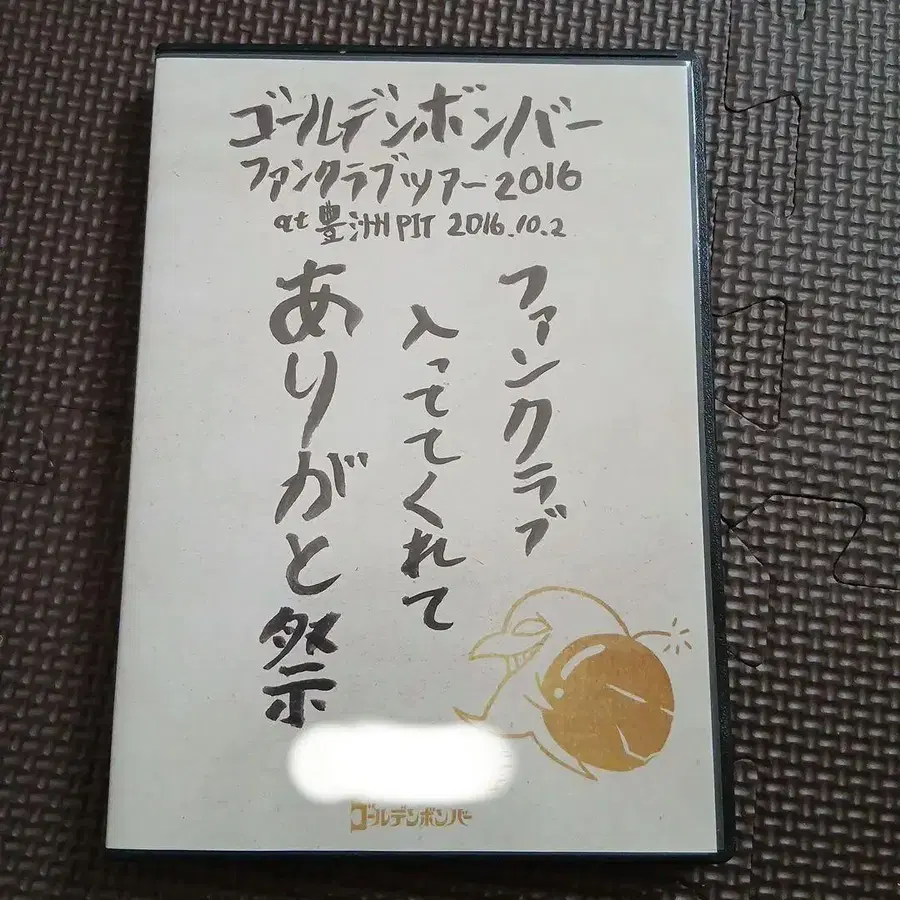 ゴールデンボンバー
ファンクラブツアー2016
at 豊洲PIT 2016.10.2
ファンクラブ
入っててくれて
ありがと祭
ゴールデンボンバー